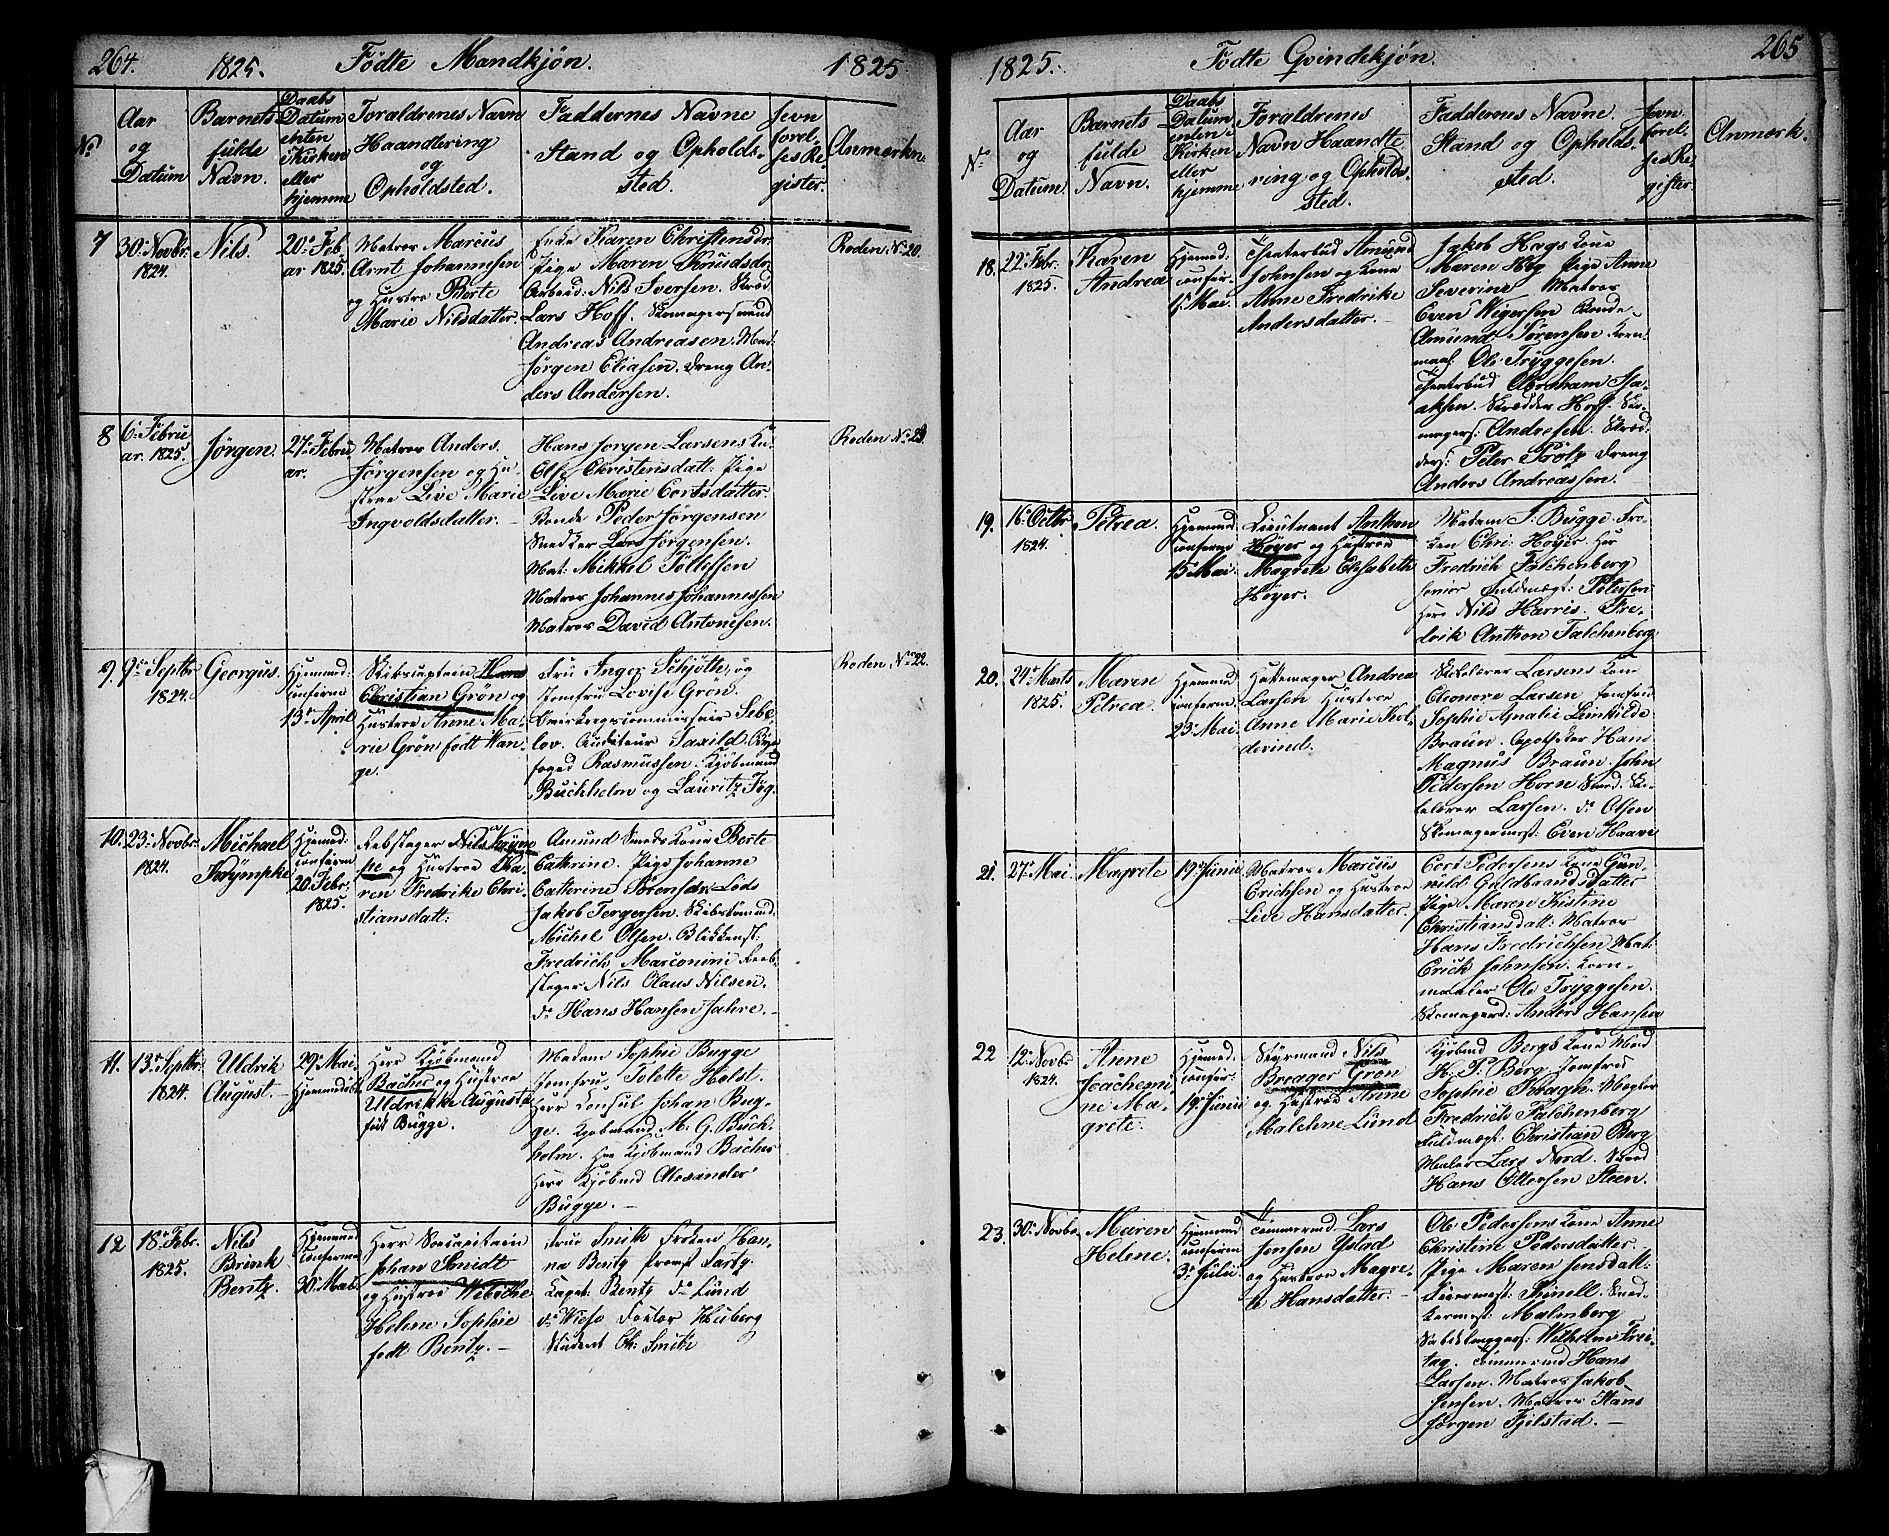 264.
1825.
Födte Mandkjön.
1825
No
Aar
og
Datum
Barnets
fulde
Navn.
Daabs
Datum
enten
i Kirken
eller
hjemme
Foraldrenes Navn
Haandtering
og
Opholdsted.
Faddernes Navne
Stand og Opholds-
sted.
Jevn
forel-
ses Re
gister.
Anmerkn.
7
30. Novbr.
1824.
Nils.
20. Feb
ar 1825.
Matros Marcus
Arnt Johannesen
og Hustro Berte
Marie Nilsdatter.
Enke Karen Christensdr.
Pige Maren Knudsdr.
Arbeid: Nils Iversen. Skræd
Lars Hoff. Skomagersvend
Andreas Andreasen. Mat.
Jörgen Eliasen. Dreng An-
ders Andersen.
Roden No 20.
8
6. Febru
ar. 1825.
Jörgen.
27. Febru
ar.
Matros Anders
Jörgensen og Hu-
stroe Live Marie
Ingvoldsdatter.
Hans Jörgen Larsens Ku
Else Christensdatt: Pige
Live Marie Cortsdatter.
Bonde Peder Jörgensen
Snedker Lars Jörgensen.
Mat: Mikkel Tollefsen
Matros Johannes Johannessen
Matros David Antonesen.
Roden No 21.
9.
9. Septbr
1824.
Georgus.
Hjemmed.
confirm
13. April
Skibscaptein Hans
Christian Grön og
Hustroe Anne Ma-
rie Grön födt Wan-
ge.
Fru Anger Schjötte, og
Jomfru Lovise Grön.
Overkrigscommissair Sebe
lov. Auditeur Taxild. Bye
foged Rasmussen. Kjöbmand
Buchholm og Lauritz Fog.
Roden No 22.
10.
23. Novbr.
1824.
Michael
Köympke
Hjemmed:
confirm
20. Febr.
1825.
Rebslager Nils Köym
pke og Hustroe Ka-
ren Fredrike Chri-
stiansdatt:
Amund Smeds Kone Berte
Cathrine. Pige Johanne
Catherine Sörensdr. Lods
Jakob Tergersen. Skibstömmd.
Michel Olsen. Blikkenst:
Fredrich Marconini Reeb-
slager Nils Olaus Nilsen.
do Hans Hansen Jahre.
11.
13. Septbr.
1824.
Uldrik
August.
29. Mai
Hjemmedöbt
Herr Kjöbmand
Bacher og Hustroe
Uldrikke Augusta
föd Bugge.
Madam Sophie Bugge
Jomfru Tolette Holst.
Herr Consul Johan Bug-
ge. Kjöbmand M. G. Buch-
holm. Her Kjöbmand Bacher
Herr Kjöbmd Alexander
Bugge.
12
18. Febr.
1825.
Nils
Brink
Bentz.
Hjemmed
Confirme
30. Mai.
Herr Söecapitain
Johan Smidt
og Hustroe Wibeche
Helene Sophie
född Bentz.
Frue Smith Fröken Han-
na Bentz Provst Sartz.
Capt: Bentz do Lund
do Wiese Doctor Heiberg
Student Ch: Smith
1825.
Födte Qvindekjön.
265
No
Aar
og
Datum.
Barnets
fulde
Navn.
Daabs
Datum
enten i
Kirken
eller
hjemme
Foraldrenes
Navn Haandte
ring og Opholds-
sted.
Faddernes Navne.
Stand og Opholds.
sted.
Jevn
forel-
ses Re
gister.
Anmærk.
18.
22. Febr.
1825.
Karen
Andrea
Hjemmed.
confir.
15. Mai.
Amund
Johnsen og Kone
Anne Fredrike
Andersdatter.
Jakob Hags Kone
Maren Hog Pige Anne
Severine Matros
Even Wigersen Bonde
Amund Sörensen Korn-
maal. Ole Tryggesen.
Abraham Isa-
aksen. Skrædder Hoff. Sko-
magers: Andresen. Skræd-
ders: Peter Protz Dreng
Anders Andreassen.
19.
16. Octbr.
1824.
Petrea.
Hjemmed:
confirm
15. Mai.
Lieutnant Anthon
Höyer og Hustroe
Magrete Elisabeth
Höyer.
Madam J. Bugge. Frö-
ken Chri: Höyer. Her
Fredrich Falchenberg
senior Fuldmægt: Petersen
Herr Nils Harris. Fre-
drik Anthon Falchenberg
20.
24. Marts
1825.
Maren
Petrea
Hjemmed
confirm.
23. Mai.
Hattemager Andrea
Larsen Hustroe
Anne Marie Kol-
devind.
Skoleloer Larsens Kone
Elconore Larsen Jomfrue
Sophie Amalie Lunkilde
Braun. Apotheker Hans
Magnus Braun. John
Pedersen Horne Smed. Sko-
lelærer Larsen. do Olsen
Skomagermst. Even Haavi
21.
27. Mai.
Magrete
19. Junii
Matros Marcus
Erichsen og Hustroe
Live Hansdatter.
Cort Pedersens Kone Gun-
nild Guldbrandsdatter
Pige Maren Kistine
Christiansdatt: Matros
Hans Fredrichsen Mat:
Erick Johnsen. Korn-
maaler Ole Tryggesen.
Skomagerd: Anders Hansen
22
12. Novbr
1824.
Anne
Joachemi
ne Ma-
grete.
Hjemmed.
confir-
19. Junii
Styrmand Nils
Breager Grön
og Hustroe Anne
Malehne Lund
Kjöbmd Bergs Kone Mad
H. P. Berg. Jomfrue
Sophie Kragh. Megler
Fredrich Falchenberg
Fuldmægt: Christian Berg
Maler Lars Nord. Smed
Hans Ottersen Steen.
23.
30. Novbr
Maren
Helene.
Hjemmed
confirm
3. Julii
Tömmermd Lars
Jensen Ystad
og Hustroe Magre-
te Hansdatter.
Ole Pedersens Kone Anne
Christine Pedersdatter.
Pige Maren Jensdatt:
Farvermest: Knell. Sned-
kermest: Malmberg
Wilhelm Frei-
tag. Tömmermd Hans
Larsen. Matros Jakob
Jensen. Matros Hans
Jörgen Fjilstad.